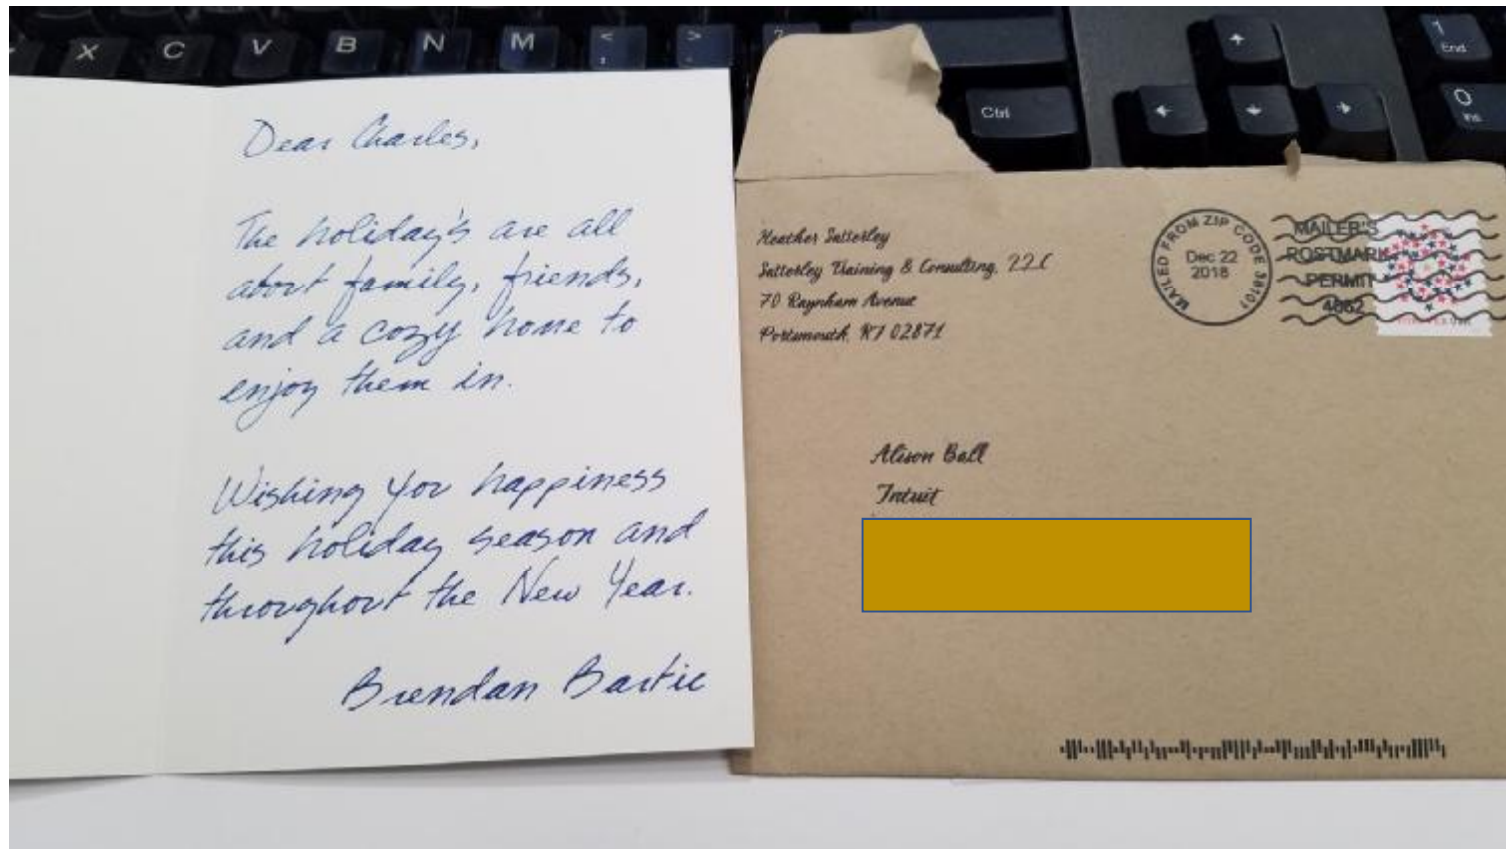 Dear Charles,
The holiday's are all
about family, friends,
and a cozy home to
enjoy them in.
Wishing you happiness
this holiday season and
throughout the New Year.
Brendan Bartic
Heather Satterley
Satterley Training & Consulting, LLC
70 Raynham Avenue
Portsmouth, RI 02871
MAILED FROM ZIP CODE 38101
Dec 22
2018
MAILER'S
POSTMARK
PERMIT
4662
Alison Ball
Intuit
X C V B N M < , > . ?
Ctrl
1
End
0
Ins